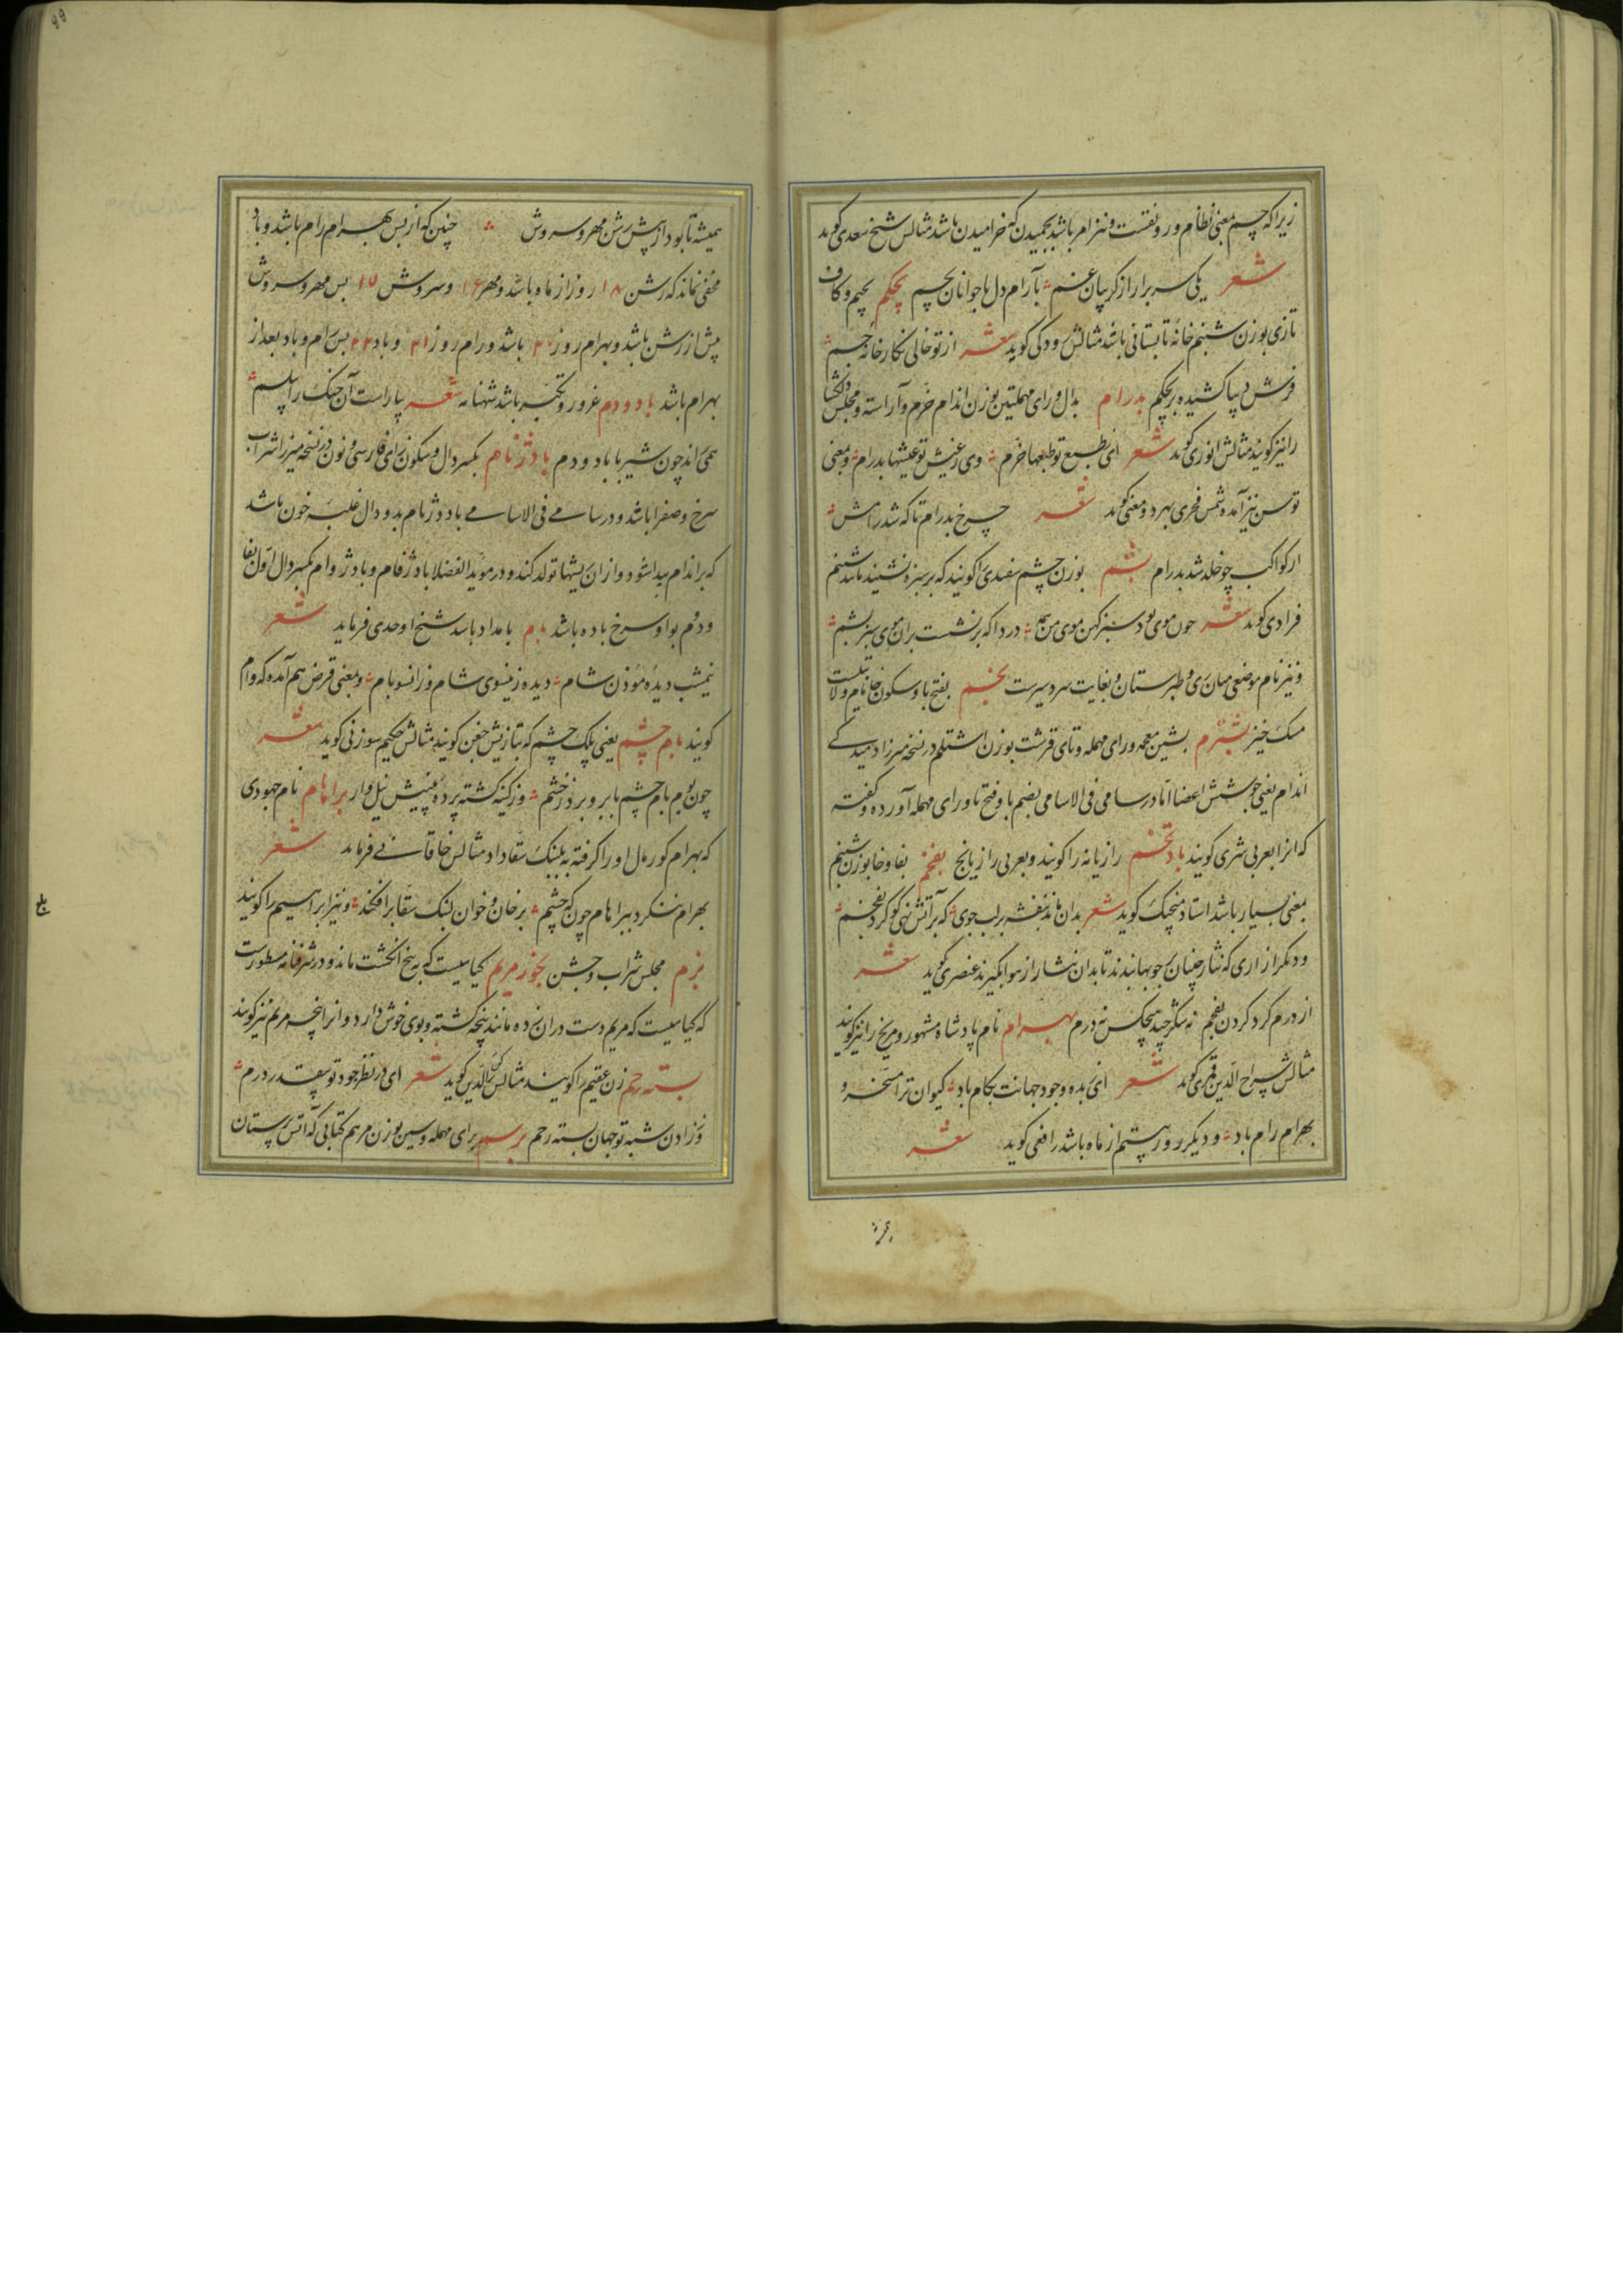 زیرا که چم بمعنی نظام و رونقست و نیز امر باشد بچمیدن که خرامیدن باشد مثالش شیخ سعدی گوید
شعر یکی سر برار از کریبان غم بآرام دل با جوانان بچم بچکم بجیم و کاف
تازی بوزن شبنم خانه تابستانی باشد مثالش رودکی کوید شعر از تو خالی نکارخانه جم
فرش دیبا کشیده بر بچکم بدرام بدال و رای مهملتین بوزن اندام خرم و آراسته و مجلس دلکشا
را نیز کویند مثالش انوری کوید شعر ای بطبع تو طبعها خرم وی ز عیش تو عیشها بدرام و بمعنی
توسن نیز آمده شمس فخری بهر دو معنی کوید شعر چرخ بدرام تا که شد رامش
از کواکب چو خلد شد بدرام بشم بوزن چشم سفیدی را کویند که بر سبزه نشیند مانند شبنم
فرادی کوید شعر چون موی بود سبز کن موی من همه دردا که بر نشست بران موی سبز بشم
و نیز نام موضعی میان ری و طبرستان و بغایت سردسیرست بخم بفتح با و سکون خا نام ولایتیست
مشک خیز بشترم بشین معجمه و رای مهمله و تای قرشت بوزن اشتلم در نسخه میرزا دمیدکی
اندام یعنی جوشش اعضا اما در سامی فی الاسامی بضم با و فتح تا و رای مهمله آورده و کفته
که انرا بعربی شری کویند بادتخم رازیانه را کویند و بعربی رازیانج بفخم بفا و خا بوزن شبنم
بمعنی بسیار باشد استاد منجیک کوید شعر بدان ماند بنفشه بر لب جوی که بر آتش نهی کوکرد بفخم
و دیکر ازاری که نثار چنیان بر چوبها بندند تا بدان نثار از هوا بکیرند عنصری کوید شعر
از درم کرد کردن بفخم نه شکر چید هیچکس نه درم بهرام نام پادشاه مشهور و مریخ را نیز کویند
مثالش سراج الدین قمری کوید شعر ای بنده وجود جهانت بکام باد کیوان ترا مسخر و
بهرام رام باد و دیکر روز بیستم از ماه باشد رافعی کوید شعر
همیشه تا بود از پیش رشن مهر و سروش چنین که از پس بهرام رام باشد و باد
مخفی نماند که رشن ۱۸ روز از ماه باشد و مهر ۱۶ و سروش ۱۷ پس مهر و سروش
پیش از رشن باشد و بهرام روز ۲۰ باشد و رام روز ۲۱ و باد ۲۲ پس رام و باد بعد از
بهرام باشد باد و دم غرور و تکبر باشد شهنامه شعر بیاراست آن جنک را پیلسم
همی راند چون شیر با باد و دم بادژنام بکسر دال و سکون زای فارسی و نون در نسخه میرزا شراب
سرخ و صفرا باشد و در سامی فی الاسامی بادژنام بدو دال غلبه خون باشد
که بر اندام پیدا شود و از ان ریشها تولد کند و در موید الفضلا بادژفام و بادژوام بکسر دال اول بفا
و دوم بواو سرخ باده باشد بام بامداد باشد شیخ اوحدی فرماید شعر
نیمشب دیده مؤذن شام دیده زینسوی شام و زانسو بام و بمعنی قرض هم آمده که وام
کویند بام چشم یعنی پلک چشم که بتازیش جفن کویند مثالش حکیم سوزنی کوید شعر
چون بوم بام چشم بابرو برد ز خشم وز کینه کشته پرده بینیش نیل وار براهام نام جهودی
که بهرام کور مال او را کرفته به لنبک سقا داد مثالش خاقانی فرماید شعر
بهرام ننکرد ببراهام چون که چشم بر خان و خوان لنبک سقا برافکند و نیز ابراهیم را کویند
بزم مجلس شراب و جشن بخور مریم کیاییست که به پنج انکشت ماند و در شرفنامه مسطورست
که کیاییست که مریم دست دران زده مانند پنجه کشته و بوی خوش دارد و انرا پنجه مریم نیز کویند
بسته رحم زن عقیم را کویند مثالش رکن الدین کوید شعر ای در نظر جود تو بیقدر درم
وز زادن شبه تو جهان بسته رحم برسم برای مهمله و سین بوزن مرهم کتابی که آتش پرستان